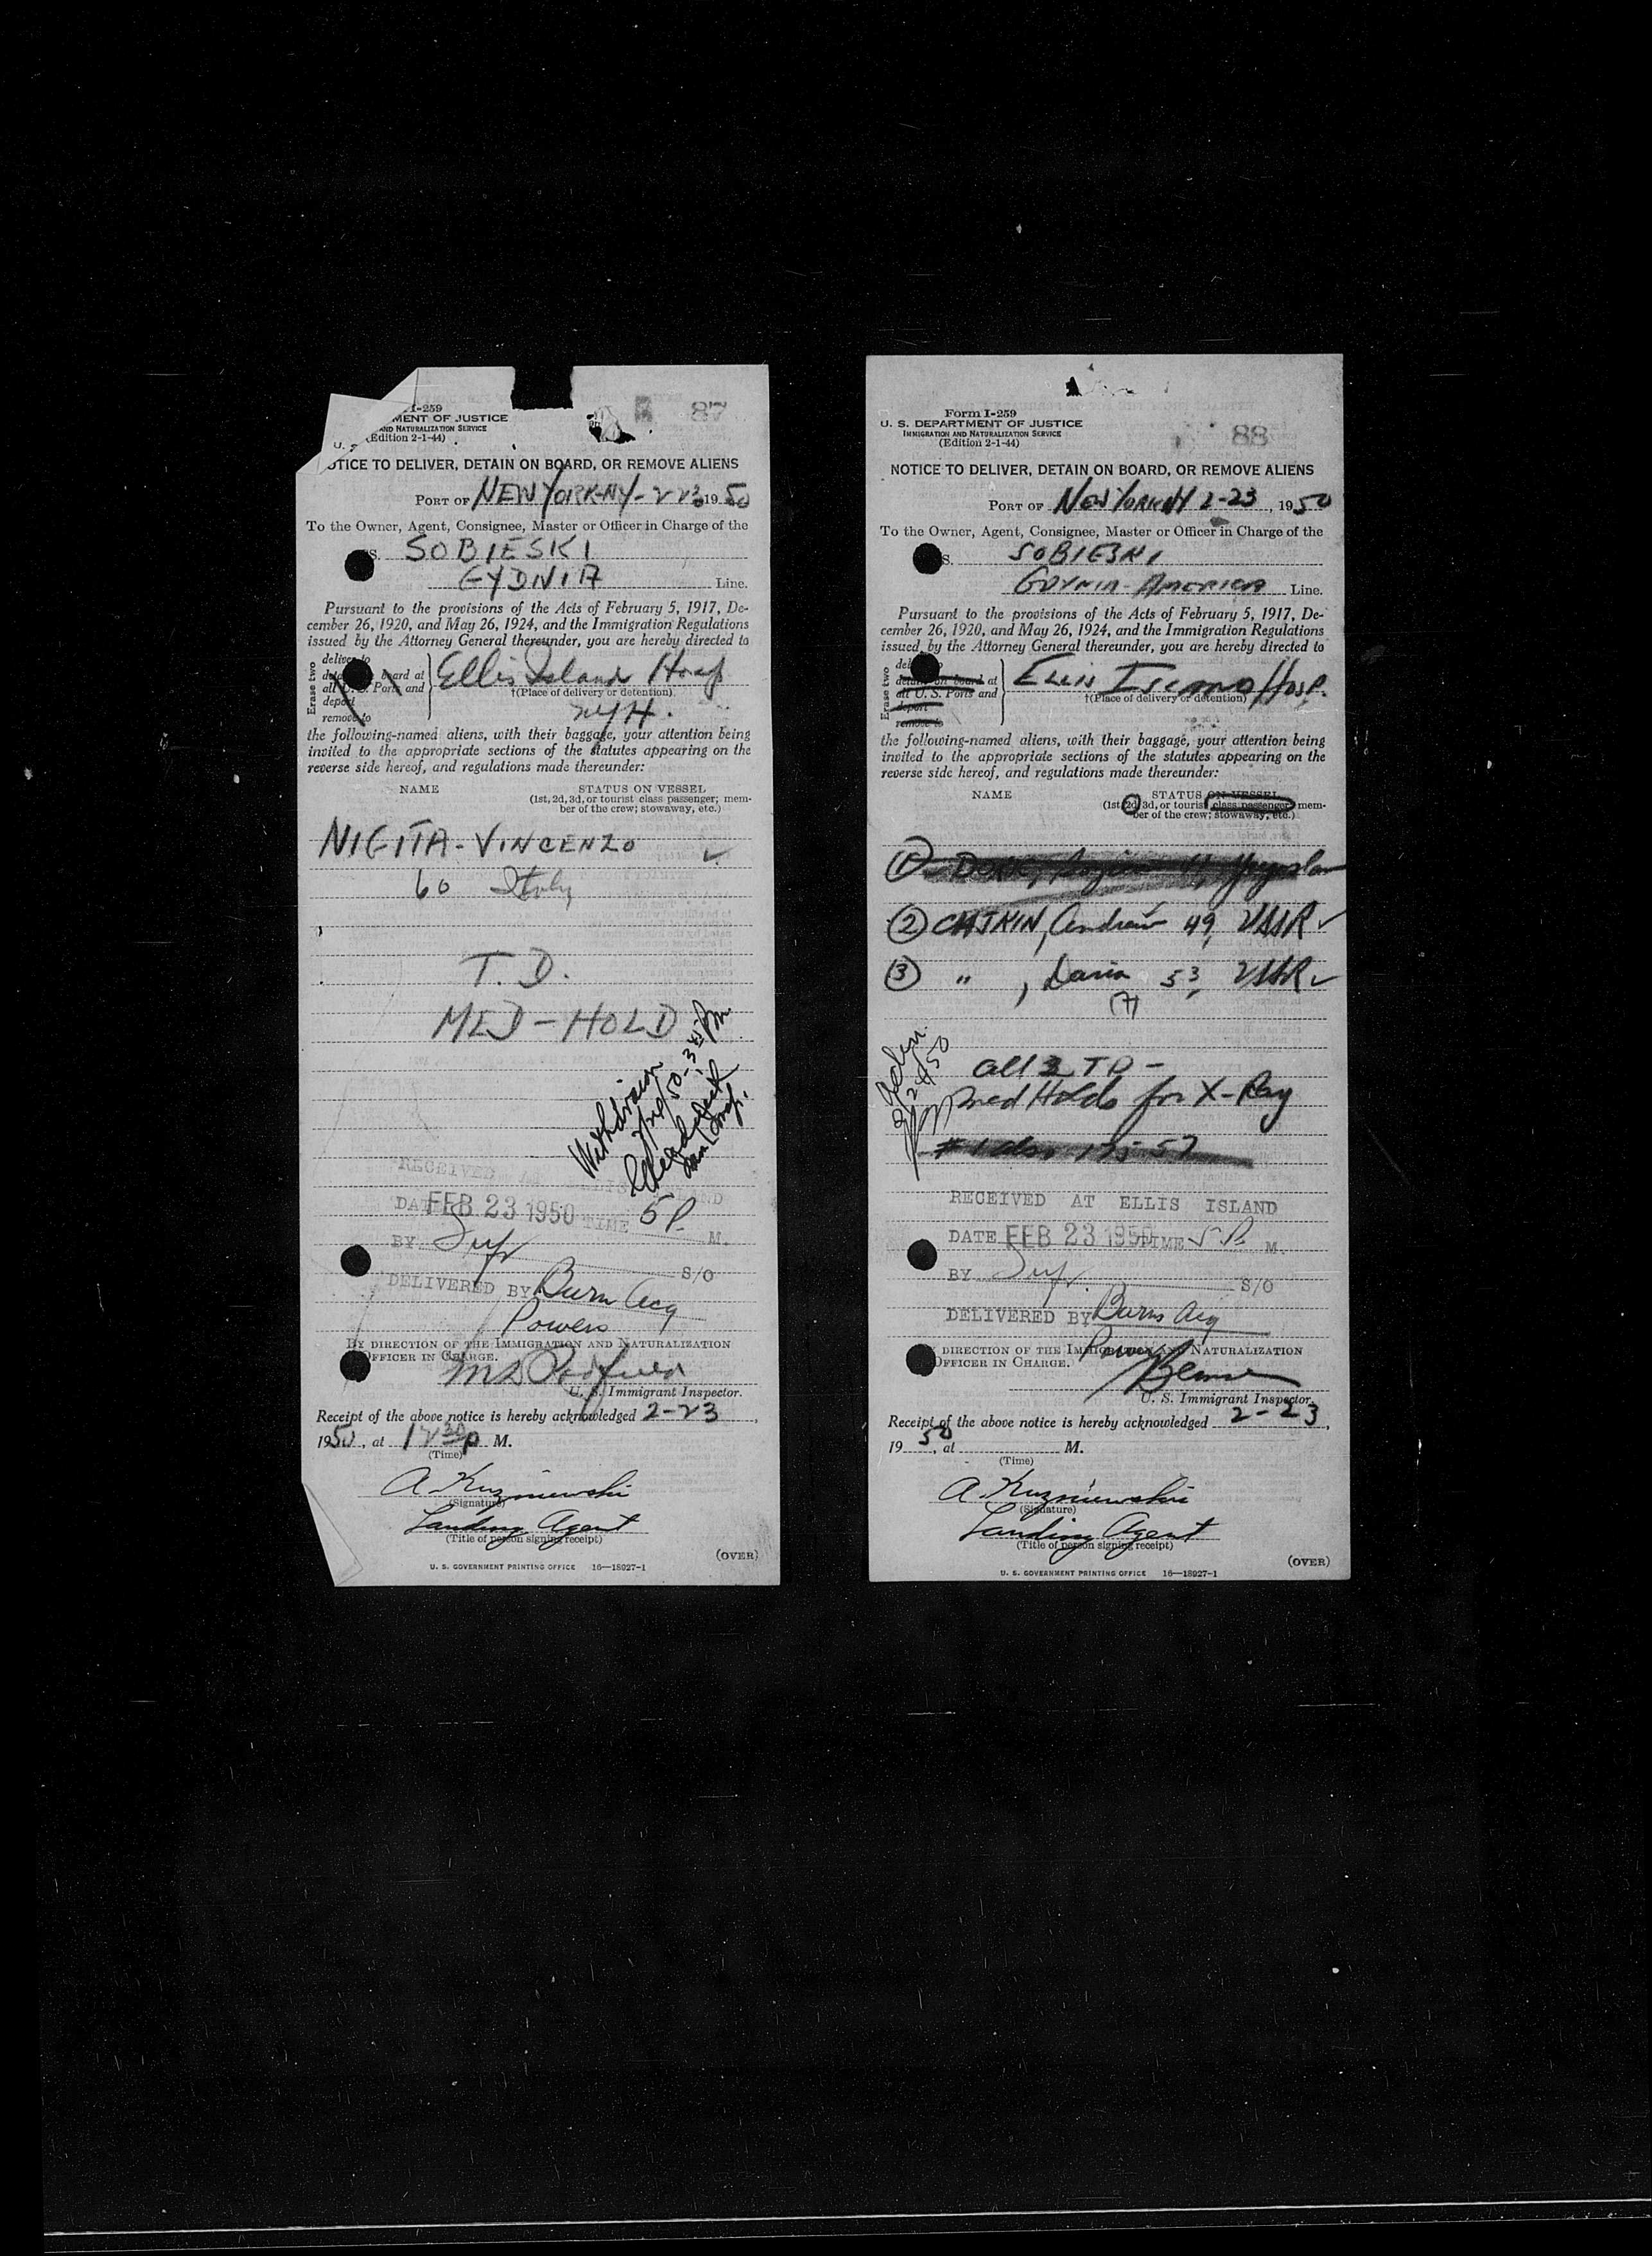 I-259
MENT OF JUSTICE
AND NATURALIZATION SERVICE
U. S
(Edition 2-1-44)
87
OTICE TO DELIVER, DETAIN ON BOARD, OR REMOVE ALIENS
PORT OF NEW YORK-NY-2-23 1950
To the Owner, Agent, Consignee, Master or Officer in Charge of the
S. SOBIESKI
GYDNIA Line.
Pursuant to the provisions of the Acts of February 5, 1917, De-
cember 26, 1920, and May 26, 1924, and the Immigration Regulations
issued by the Attorney General thereunder, you are hereby directed to
Erase two
deliver to
board at
all U. S. Ports and
deport
remove to
Ellis Island Hosp
†(Place of delivery or detention)
NYH.
the following-named aliens, with their baggage, your attention being
invited to the appropriate sections of the statutes appearing on the
reverse side hereof, and regulations made thereunder:
NAME STATUS ON VESSEL
(1st, 2d, 3d, or tourist class passenger; mem-
ber of the crew; stowaway, etc.)
NIGITA - VINCENZO ✓
60 Italy
T. D.
MED - HOLD
Withdrawn
RECEIVED ELLIS ISLAND
DATE FEB 23 1950 TIME 5 P. M.
BY S/O
DELIVERED BY Burns Acq
Powers
BY DIRECTION OF THE IMMIGRATION AND NATURALIZATION
OFFICER IN CHARGE.
U. S. Immigrant Inspector.
Receipt of the above notice is hereby acknowledged 2-23,
1950, at 12 30 p M.
(Time)
A. Kuzniewski
(Signature)
Landing Agent
(Title of person signing receipt)
(OVER)
U. S. GOVERNMENT PRINTING OFFICE 16—18927-1
Form I-259
U. S. DEPARTMENT OF JUSTICE
IMMIGRATION AND NATURALIZATION SERVICE
(Edition 2-1-44)
88
NOTICE TO DELIVER, DETAIN ON BOARD, OR REMOVE ALIENS
PORT OF NEW YORK NY 2-23, 1950
To the Owner, Agent, Consignee, Master or Officer in Charge of the
S. SOBIESKI
GDYNIA-AMERICA Line.
Pursuant to the provisions of the Acts of February 5, 1917, De-
cember 26, 1920, and May 26, 1924, and the Immigration Regulations
issued by the Attorney General thereunder, you are hereby directed to
Erase two
detain on board at
all U. S. Ports and
deport
remove to
ELLIS ISLAND HOSP.
†(Place of delivery or detention)
the following-named aliens, with their baggage, your attention being
invited to the appropriate sections of the statutes appearing on the
reverse side hereof, and regulations made thereunder:
NAME STATUS ON VESSEL
(1st, 2d, 3d, or tourist class passenger; mem-
ber of the crew; stowaway, etc.)
①
② CHIKIN, Andrew 49, USSR ✓
③ " , Daria 53, USSR ✓
(7)
2/24/50
all 3 TD -
Med Holds for X-Ray
RECEIVED AT ELLIS ISLAND
DATE FEB 23 1950 TIME 5 P. M.
BY S/O
DELIVERED BY Burns Acq
Powers
DIRECTION OF THE IMMIGRATION AND NATURALIZATION
OFFICER IN CHARGE.
U. S. Immigrant Inspector.
Receipt of the above notice is hereby acknowledged 2-23,
1950, at M.
(Time)
A. Kuzniewski
(Signature)
Landing Agent
(Title of person signing receipt)
(OVER)
U. S. GOVERNMENT PRINTING OFFICE 16—18927-1